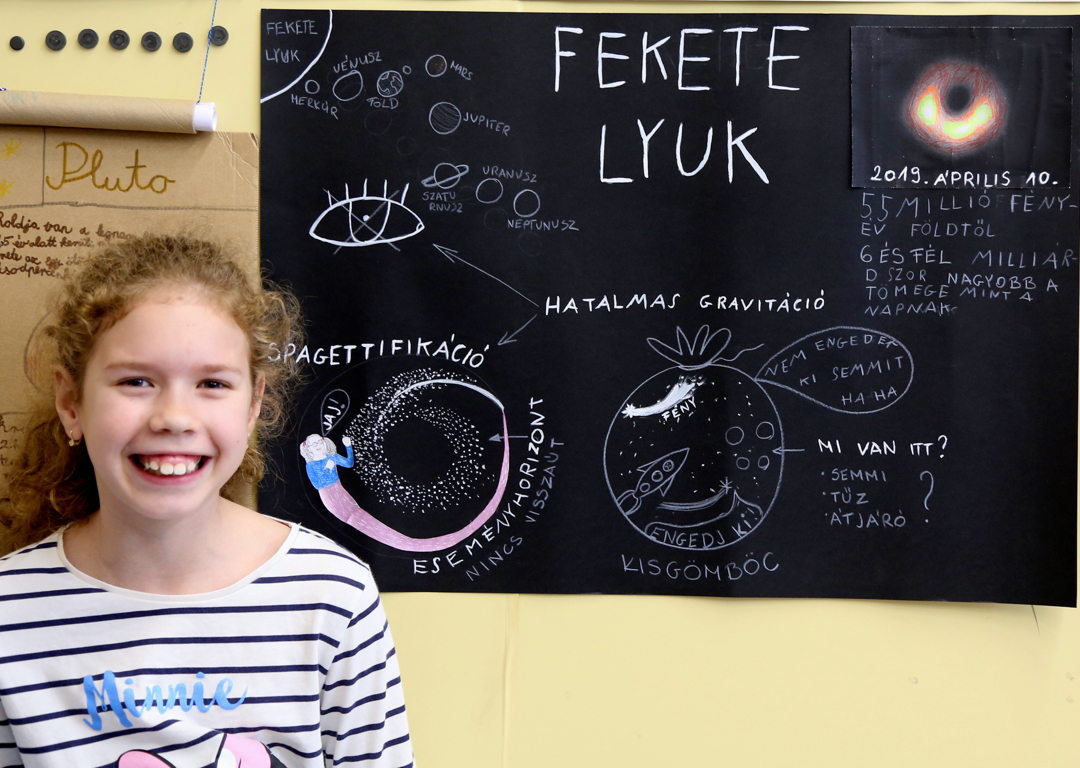 FEKETE
LYUK
MERKÚR
VÉNUSZ
FÖLD
MARS
JUPITER
SZATU
RNUSZ
URANUSZ
NEPTUNUSZ
FEKETE
LYUK
2019. ÁPRILIS 10.
55 MILLIÓ FÉNY-
ÉV FÖLDTŐL
6 ÉS FÉL MILLIÁR-
D SZOR NAGYOBB A
TÖMEGE MINT A
NAPNAK
HATALMAS GRAVITÁCIÓ
SPAGETTIFIKÁCIÓ
JAJ!
ESEMÉNYHORIZONT
NINCS VISSZAÚT
NEM ENGEDEK
KI SEMMIT
HA HA
FÉNY
ENGEDJ KI!
KISGÖMBÖC
MI VAN ITT?
• SEMMI
• TŰZ
• ÁTJÁRÓ
?
Pluto
Minnie